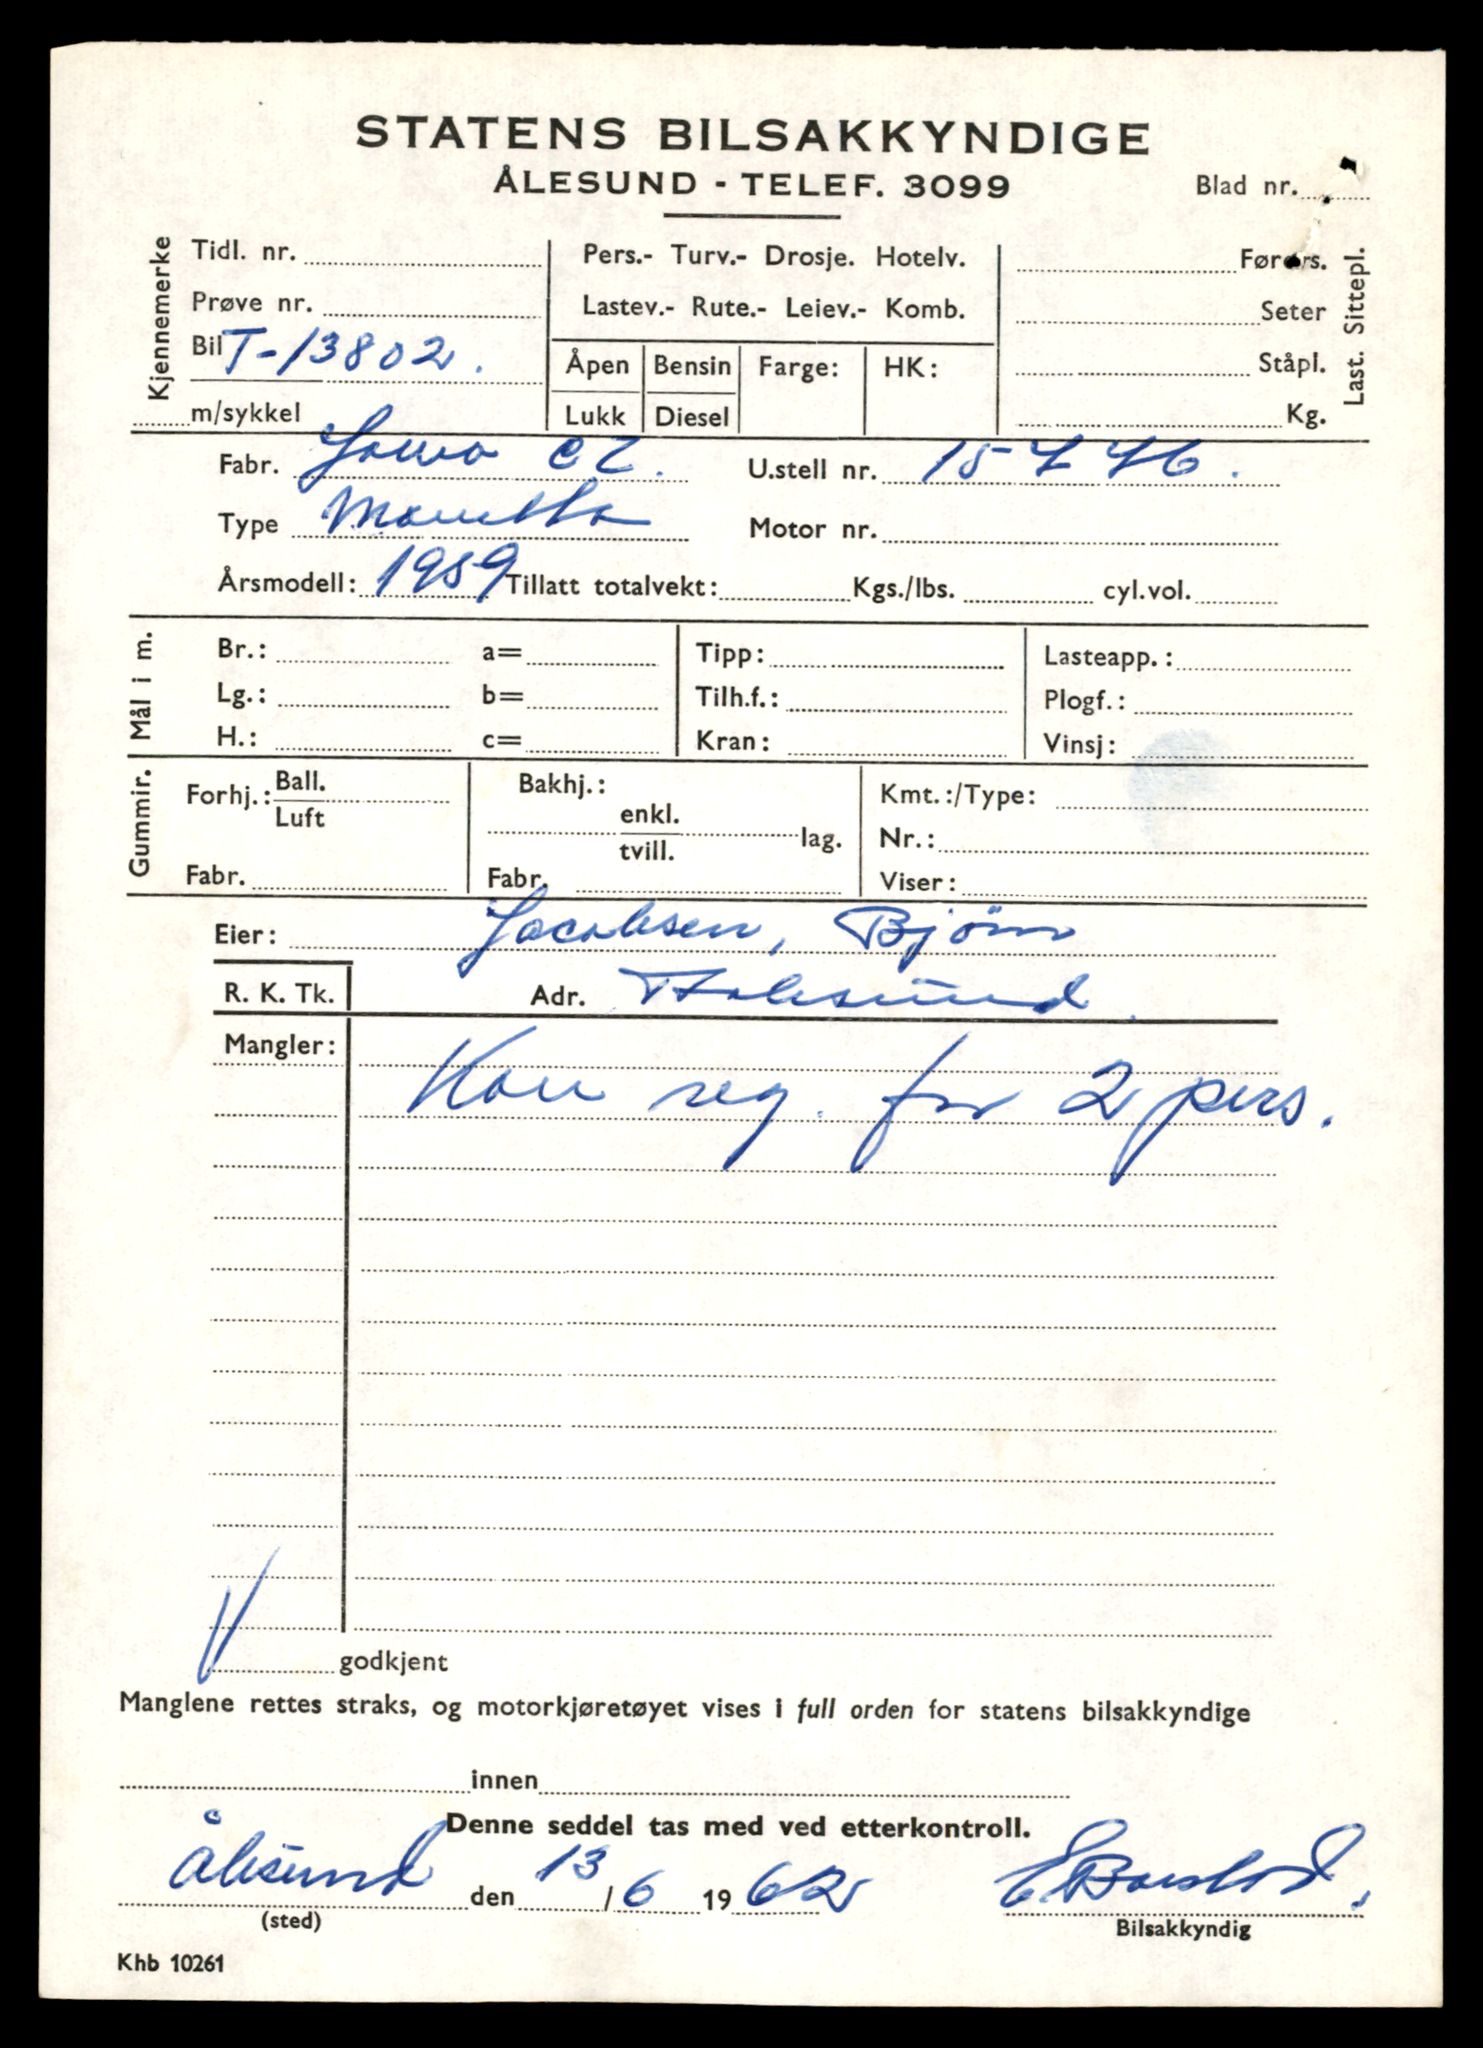 STATENS BILSAKKYNDIGE
ÅLESUND - TELEF. 3099
Blad nr.
Kjennemerke
Tidl. nr.
Prøve nr.
Bil T-13802.
m/sykkel
Pers.- Turv.- Drosje. Hotelv.
Lastev.- Rute.- Leiev.- Komb.
Åpen Bensin Farge: HK:
Lukk Diesel
Førers.
Seter
Ståpl.
Kg.
Last. Sittepl.
Fabr. Jawa CZ. U.stell nr. 157446.
Type Manetta Motor nr.
Årsmodell: 1959 Tillatt totalvekt: Kgs./lbs. cyl.vol.
Mål i m.
Br.: a= Tipp: Lasteapp.:
Lg.: b= Tilh.f.: Plogf.:
H.: c= Kran: Vinsj:
Gummir.
Forhj.: Ball. Luft
Fabr.
Bakhj.:
enkl. tvill. lag.
Fabr.
Kmt.:/Type:
Nr.:
Viser:
Eier: Jacobsen, Bjørn
R. K. Tk. Adr.
Mangler:
Kan reg. for 2 pers.
V godkjent
Manglene rettes straks, og motorkjøretøyet vises i full orden for statens bilsakkyndige
innen
Denne seddel tas med ved etterkontroll.
Ålesund den 13/6 1962
(sted)
Bilsakkyndig
Khb 10261